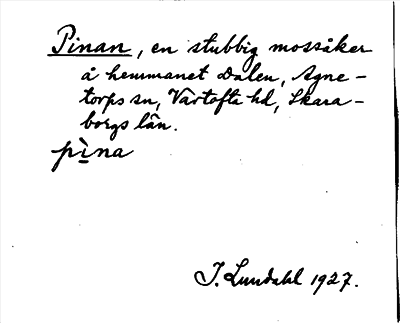 Pinan, en stubbig mossåker
å hemmanet Dalen, Agne-
torps sn, Vartofta hd, Skara-
borgs län.
pìna
I. Lundahl 1927.